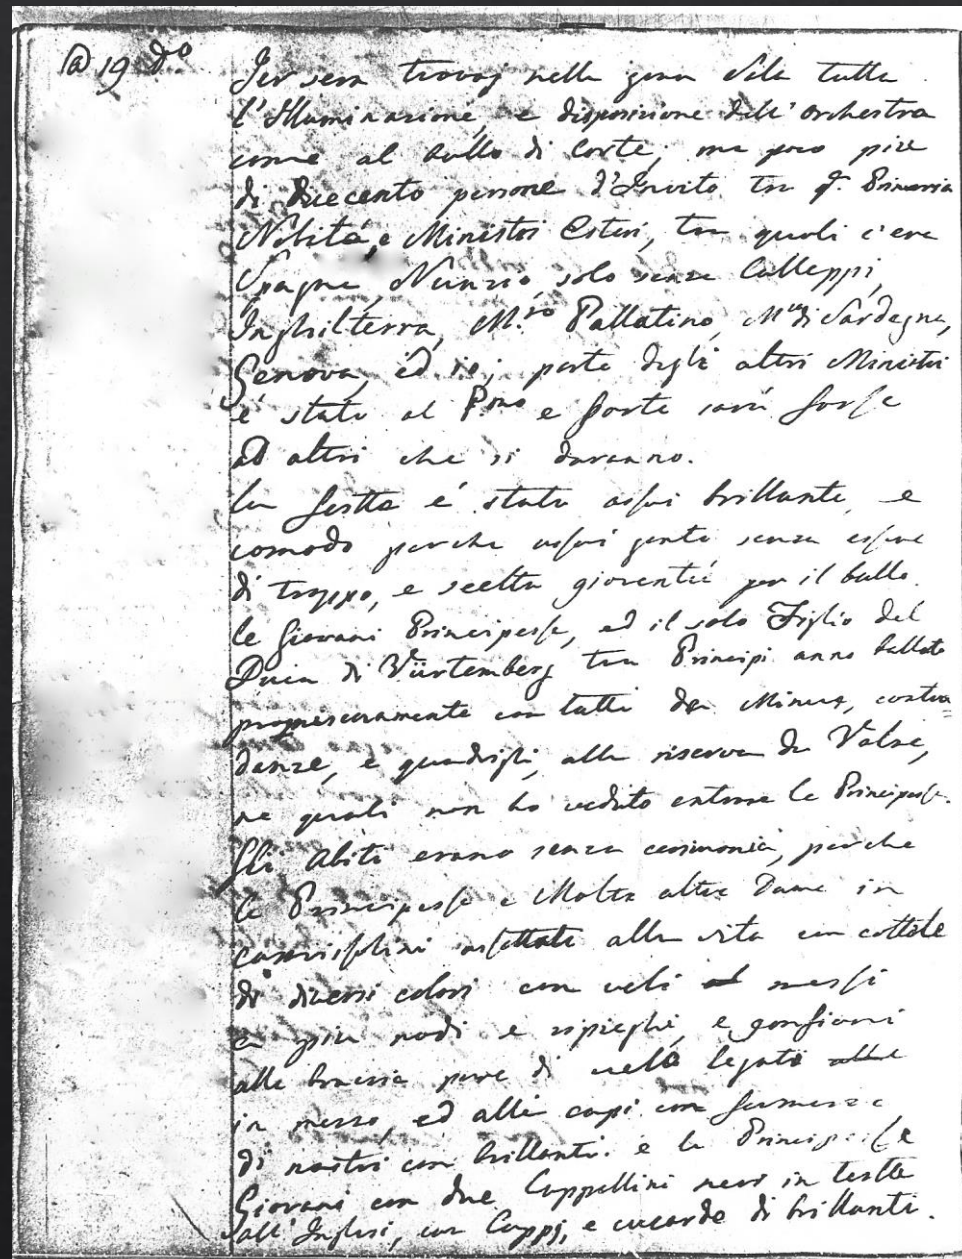 a 19 d.o
Jer sera trovaj nella gran Sala tutta
l'Illuminazione, e disposizione dell'orchestra
come al ballo di Corte, ma poco più
di duecento persone d'Invito tra Primaria
Nobiltà, e Ministri Esteri, tra quali c'era
Spagna, Nunzio, solo senza Caleppi,
Inghilterra, M.ro Pallatino, M. di Sardegna,
Genova, ed io; parte degli altri Ministri
è stata al P.mo e parte sarà forse
ad altri che si daranno.
La festa è stata assai brillante, e
comodo perche assai gente senza essere
di troppo, e scelta gioventù per il ballo.
le Giovani Principesse, ed il solo Figlio del
Duca di Würtemberg tra Principi anno ballato
con tutti da Minuè, contra
danze, e quadrigli, alla riserva da Valse,
ne quali non ho veduto entrare le Principesse.
Gli Abiti erano senza cerimonia, perche
le Principesse e Molte altre Dame in
assettate alla vita con cottole
di diversi colori con veli messi
a più nodi e ripieghi, e gonfioni
alle braccia pure di velo legate
in mezzo, ed alli capi con
di nastri con brillanti: e le Principesse
Giovani con due Cappellini neri in testa
all'Inglesi, con Cappj, e cocarde di brillanti.